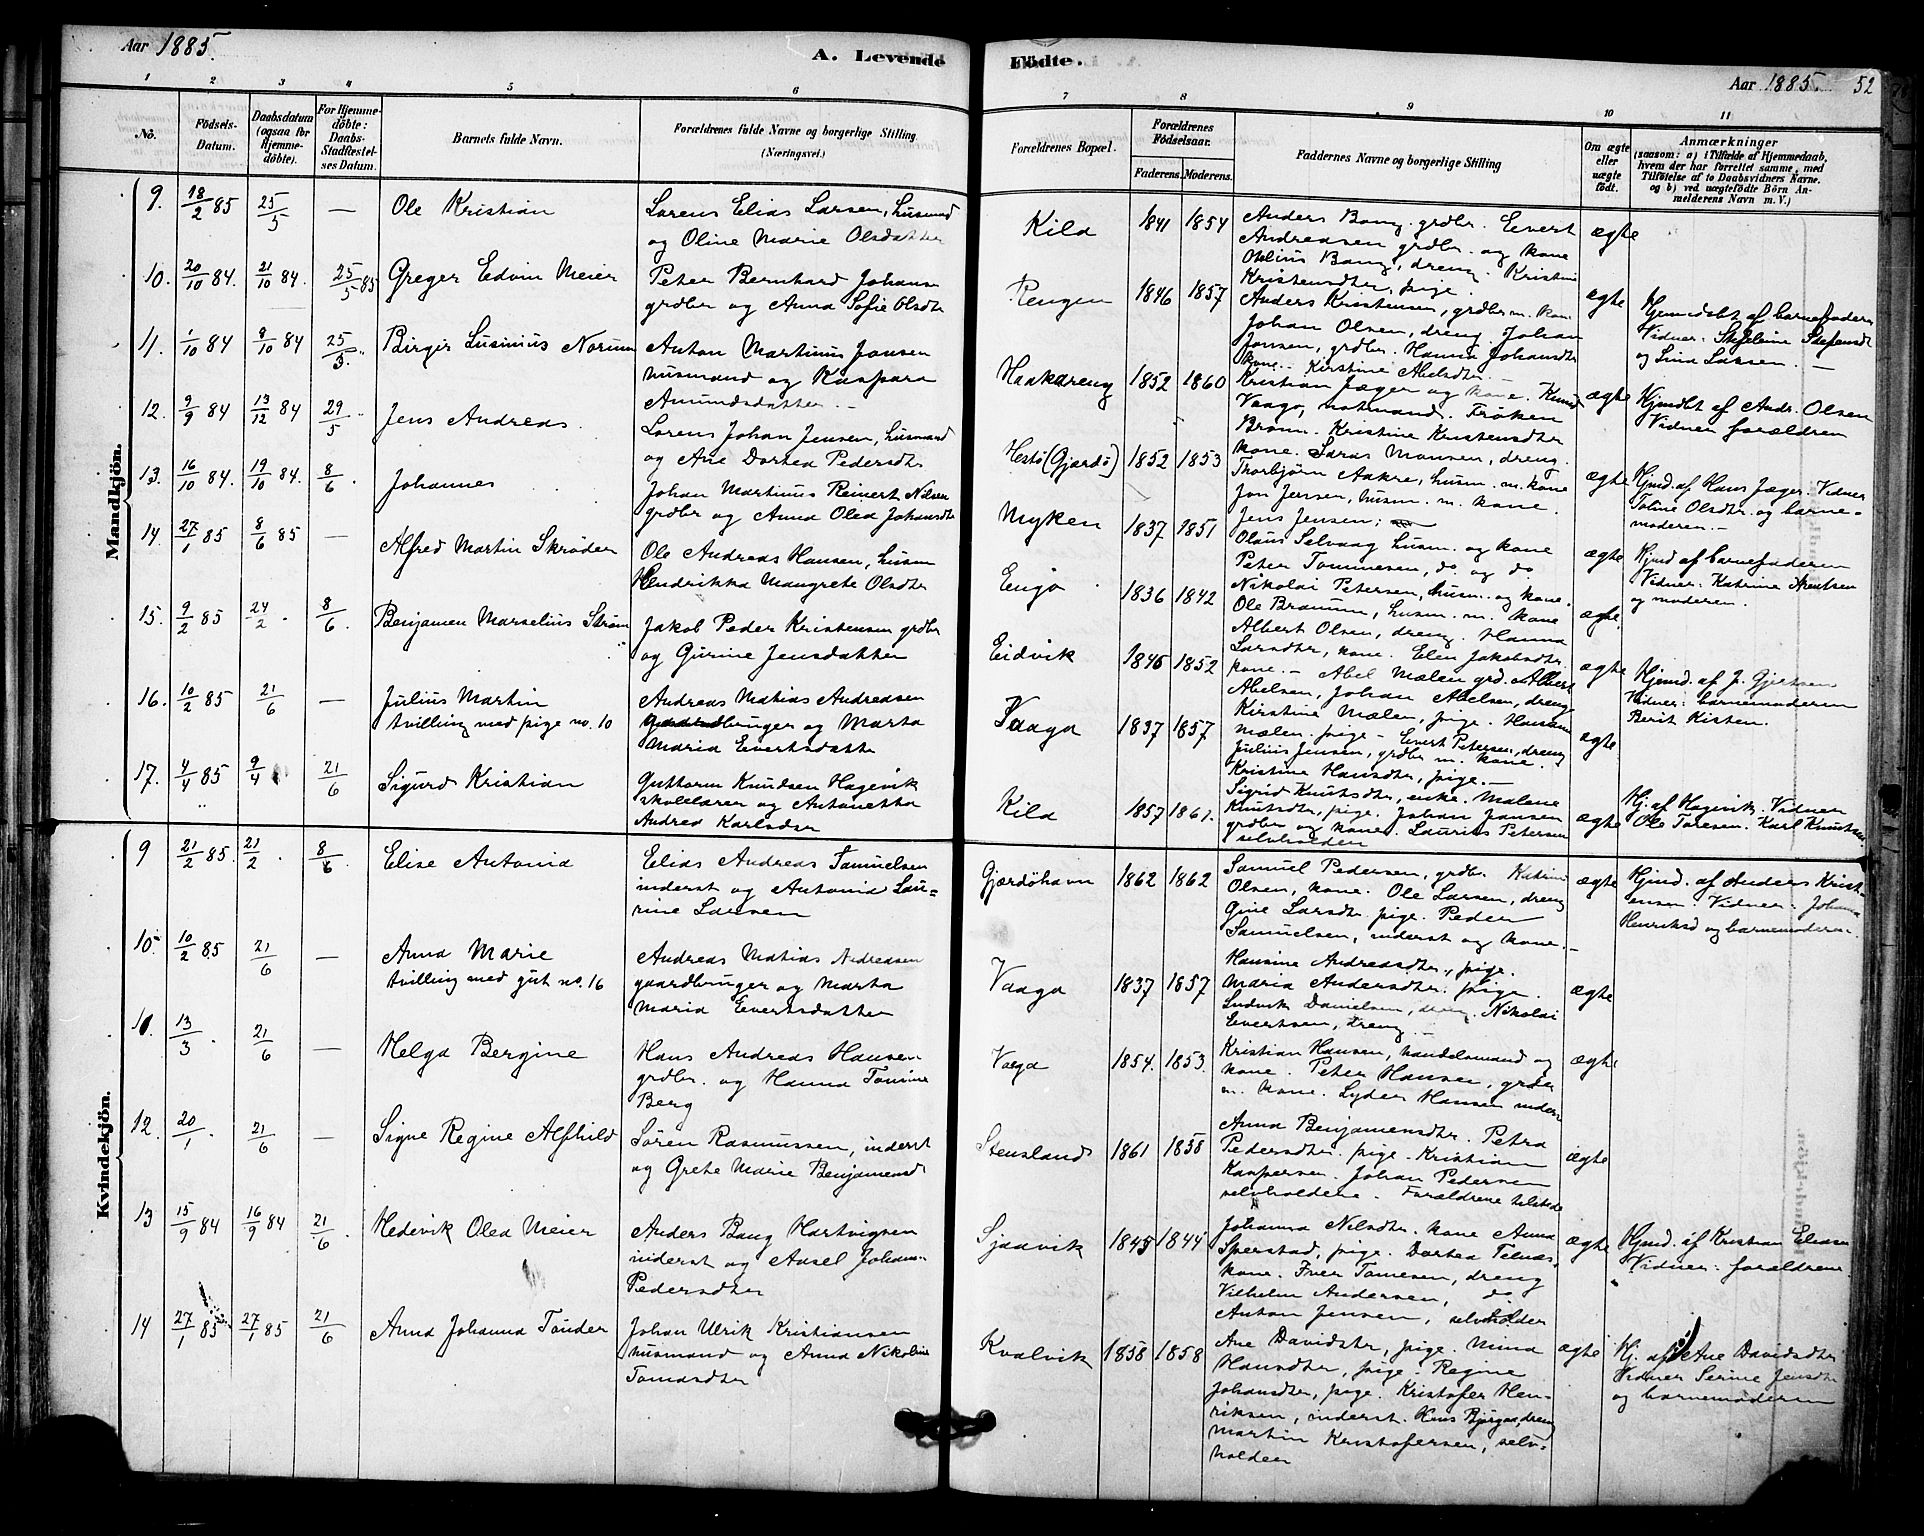 Aar 1885.
A. Levende
1 2 3 4 5 6
No.
Födsels-
Datum.
Daabsdatum
(ogsaa for
Hjemme-
döbte).
For Hjemme-
döbte:
Daabs-
Stadfæstel-
ses Datum.
Barnets fulde Navn.
Forældrenes fulde Navne og borgerlige Stilling.
(Næringsvei.)
Mandkjön.
9. 18/2 85 25/5 — Ole Kristian
Lorens Elias Larsen, husmand
og Oline Marie Olsdatter
10. 20/10 84. 21/10 84. 25/5 85 Greger Edvin Meier
Peter Bernhard Johans
grdbr og Anna Sofie Olsdtr
11. 1/10 84 9/10 84 25/3. Birger Lusinius Norum
Anton Martinus Jonsen
husmand og Kaspara
Amundsdatter. —
12. 9/9 84 13/12 84 29/5 Jens Andreas.
Lorens Johan Jensen, husmand
og Ane Dortea Pedersdtr
13. 16/10 84. 19/10 84. 8/6 . Johannes
Johan Martinus Reinert Nilsen
grdbr og Anna Olea Johansdtr
14. 27/1 85 8/6 85 — Alfred Martin Skröder
Ole Andreas Hansen, husm
Hendrikka Mangrete Olsdtr
15. 9/2 85 24/2 . 8/6 . Benjamen Marselius Ström
Jakob Peder Kristensen grdbr
og Gurine Jensdatter
16. 10/2 85 21/6 — Julius Martin
tvilling med pige no. 10
Andreas Matias Andreasen
gaardbruger og Marta
Maria Evertsdatte
17. 4/4 85 9/4 21/6 Sigurd Kristian
Guttorm Knudsen Hagevik
skolelærer og Antonetta
Andrea Karlsdtr
Kvindekjön.
9 21/2 85. 21/2 . 8/6 Elise Antonia
Elias Andreas Samuelsen
inderst og Antonia Lau-
rine Larsen
10. 10/2 85 21/6 — Anna Marie
tvilling med gut no. 16
Andreas Matias Andreasen
gaardbruger og Marta
Maria Evertsdatter
11. 13/3 . 21/6 — Helga Bergine
Hans Andreas Hansen
grdbr. og Hanna Tomine
Berg
12. 20/1 . 21/6 — Signe Regine Alfhild
Sören Rasmussen, inderst
og Grete Marie Benjamensd
13 15/9 84 16/9 84 21/6 . Hedevik Olea Meier
Anders Bang Hartvigsen
inderst og Axsel Johan-
Pedersdtr
14 27/1 85 27/1 85 21/6 Anna Johanna Tönder
Johan Ulrik Kristiansen
husmand og Anna Nikoline
Tomasdtr
Födte.
Aar 1885. 52
7 8 9 10 11
Forældrenes Bopæl.
Forældrenes
Födselsaar.
Faderens. Moderens.
Faddernes Navne og borgerlige Stilling
Om ægte
eller
uægte
födt.
Anmærkninger
(saasom: a) i Tilfælde af Hjemmedaab,
hvem der har forrettet samme, med
Tilföielse af to Daabsvidners Navne.
og b) ved uægtefödte Börn An-
melderens Navn m. V.)
Kila 1841 1854
Anders Bang. grdbr. Evert
Andreasen grdbr. og kone
Otilius Bang, dreng. Kristine
Kristensdtr, pige
ægte
Rengen 1846 1857
Anders Kristensen, grdbr m. kone
Johan Olsen, dreng. Johan
Jonsen, grdbr. Hanna Johansdtr
kone. Kirstine Abelsdtr.
ægte
Hjemmedøbt af barnefaderen
Vidner:
og Lina Larsen. —
Haakareng 1852 1860
Kristian Jæger og kone. Knud
Vaago, notmand. Fröken
Bronn. Kristine Kristensdtr
kone. Laras Monsen, dreng.
ægte
Hjmdbt af Andr. Olsen
Vidner forældren
Hestö (Gjærdö) 1852 1853
Thorbjörn Aakre, husm. m. kone
Jon Jensen, husm. m. kone.
Jens Jensen;
ægte
Hjmd. af Hans Jæger. Vidner
Toline Olsdtr. og barne-
moderen. —
Myken 1837 1851
Olaus Selvaag husm. og kone
Peter Tommesen, do og do
ægte
Hjmd af barnefaderen
Vidner: Katrine Arentsen
og moderen.
Engö 1836 1842
Nikolai Petersen, husm. og kone.
Ole Branum, husm. m. kone
Albert Olsen, dreng. Hanna
Larsdtr, kone. Elen Jakobsdtr
kone. —
ægte.
Eidvik 1845 1852
Abel Mælen grd. Albert
Abelsen, Johan Abelsen, dreng
Kirstine Mælen, pige. Hansine
Mælen. pige —
ægte
Hjmd. af J. Gjertsen
Vidner: barnemoderen
Berit Kisten.
Vaaga 1837 1857
Evert Petersen, dreng
Julius Jensen, grdbr m. kone.
Kristine Hansdtr, pige. —
ægte
Kila 1857 1861.
Sigrid Knutsdtr, enke. Malene
Knutsdtr, pige. Johan Jansen
grdbr og kone. Laurits Petersen
selvholden
ægte
Hj. af Hagevik. Vidner
Ole Toresen. Karl Knutsen
Gjærdöhavn 1862 1862
Samuel Pedersen, grdbr. Katrine
Olsen, kone. Ole Larsen, dreng
Gine Larsdtr. pige. Peder
Samuelsen, inderst og kone. —
ægte
Hjmd. af Anders Krist-
ensen. Vidner. Johana
Henriksd og barnemoderen.
Vaaga 1837 1857
Hansine Andreasdtr, pige.
Maria Andersdtr. pige.
Ludvik Danielsen, dreng. Nikolai
Evertsen, dreng. —
ægte
Vaaga 1854. 1853.
Kristian Hansen, handelsmand og
kone. Peter Hansen, grdbr
m. kone. Lyder Hansen inderst
ægte
Stensland 1861 1858
Anna Benjamensdtr. Petra
Pedersdtr. pige. Kristian
Kaspersen. Johan Pedersen
selvholdene. Forældrene tilstede
ægte
Sjaavik 1845 1844
Johanna Nilsdtr. kone Anna
Sperstad, pige. Dortea Telnes,
kone. Iver Tomesen, dreng
Vilhelm Andersen, do
Anton Jensen, selvholden
ægte
Hjmd. af Kristian Eliasen
Vidner: forældrene.
Kvalvik 1858 1858
Ane Davidster, pige. Nina
Hansdtr, pige. Regine
Johansdtr, pige. Kristofer Hen-
riksen, inderst. Kens Bjørgaa, dreng
Martin Kristofersen, selv-
holden
ægte
Hj. af Ane Davidsdtr
Vidner Serine Jensdtr
og barnemoderen